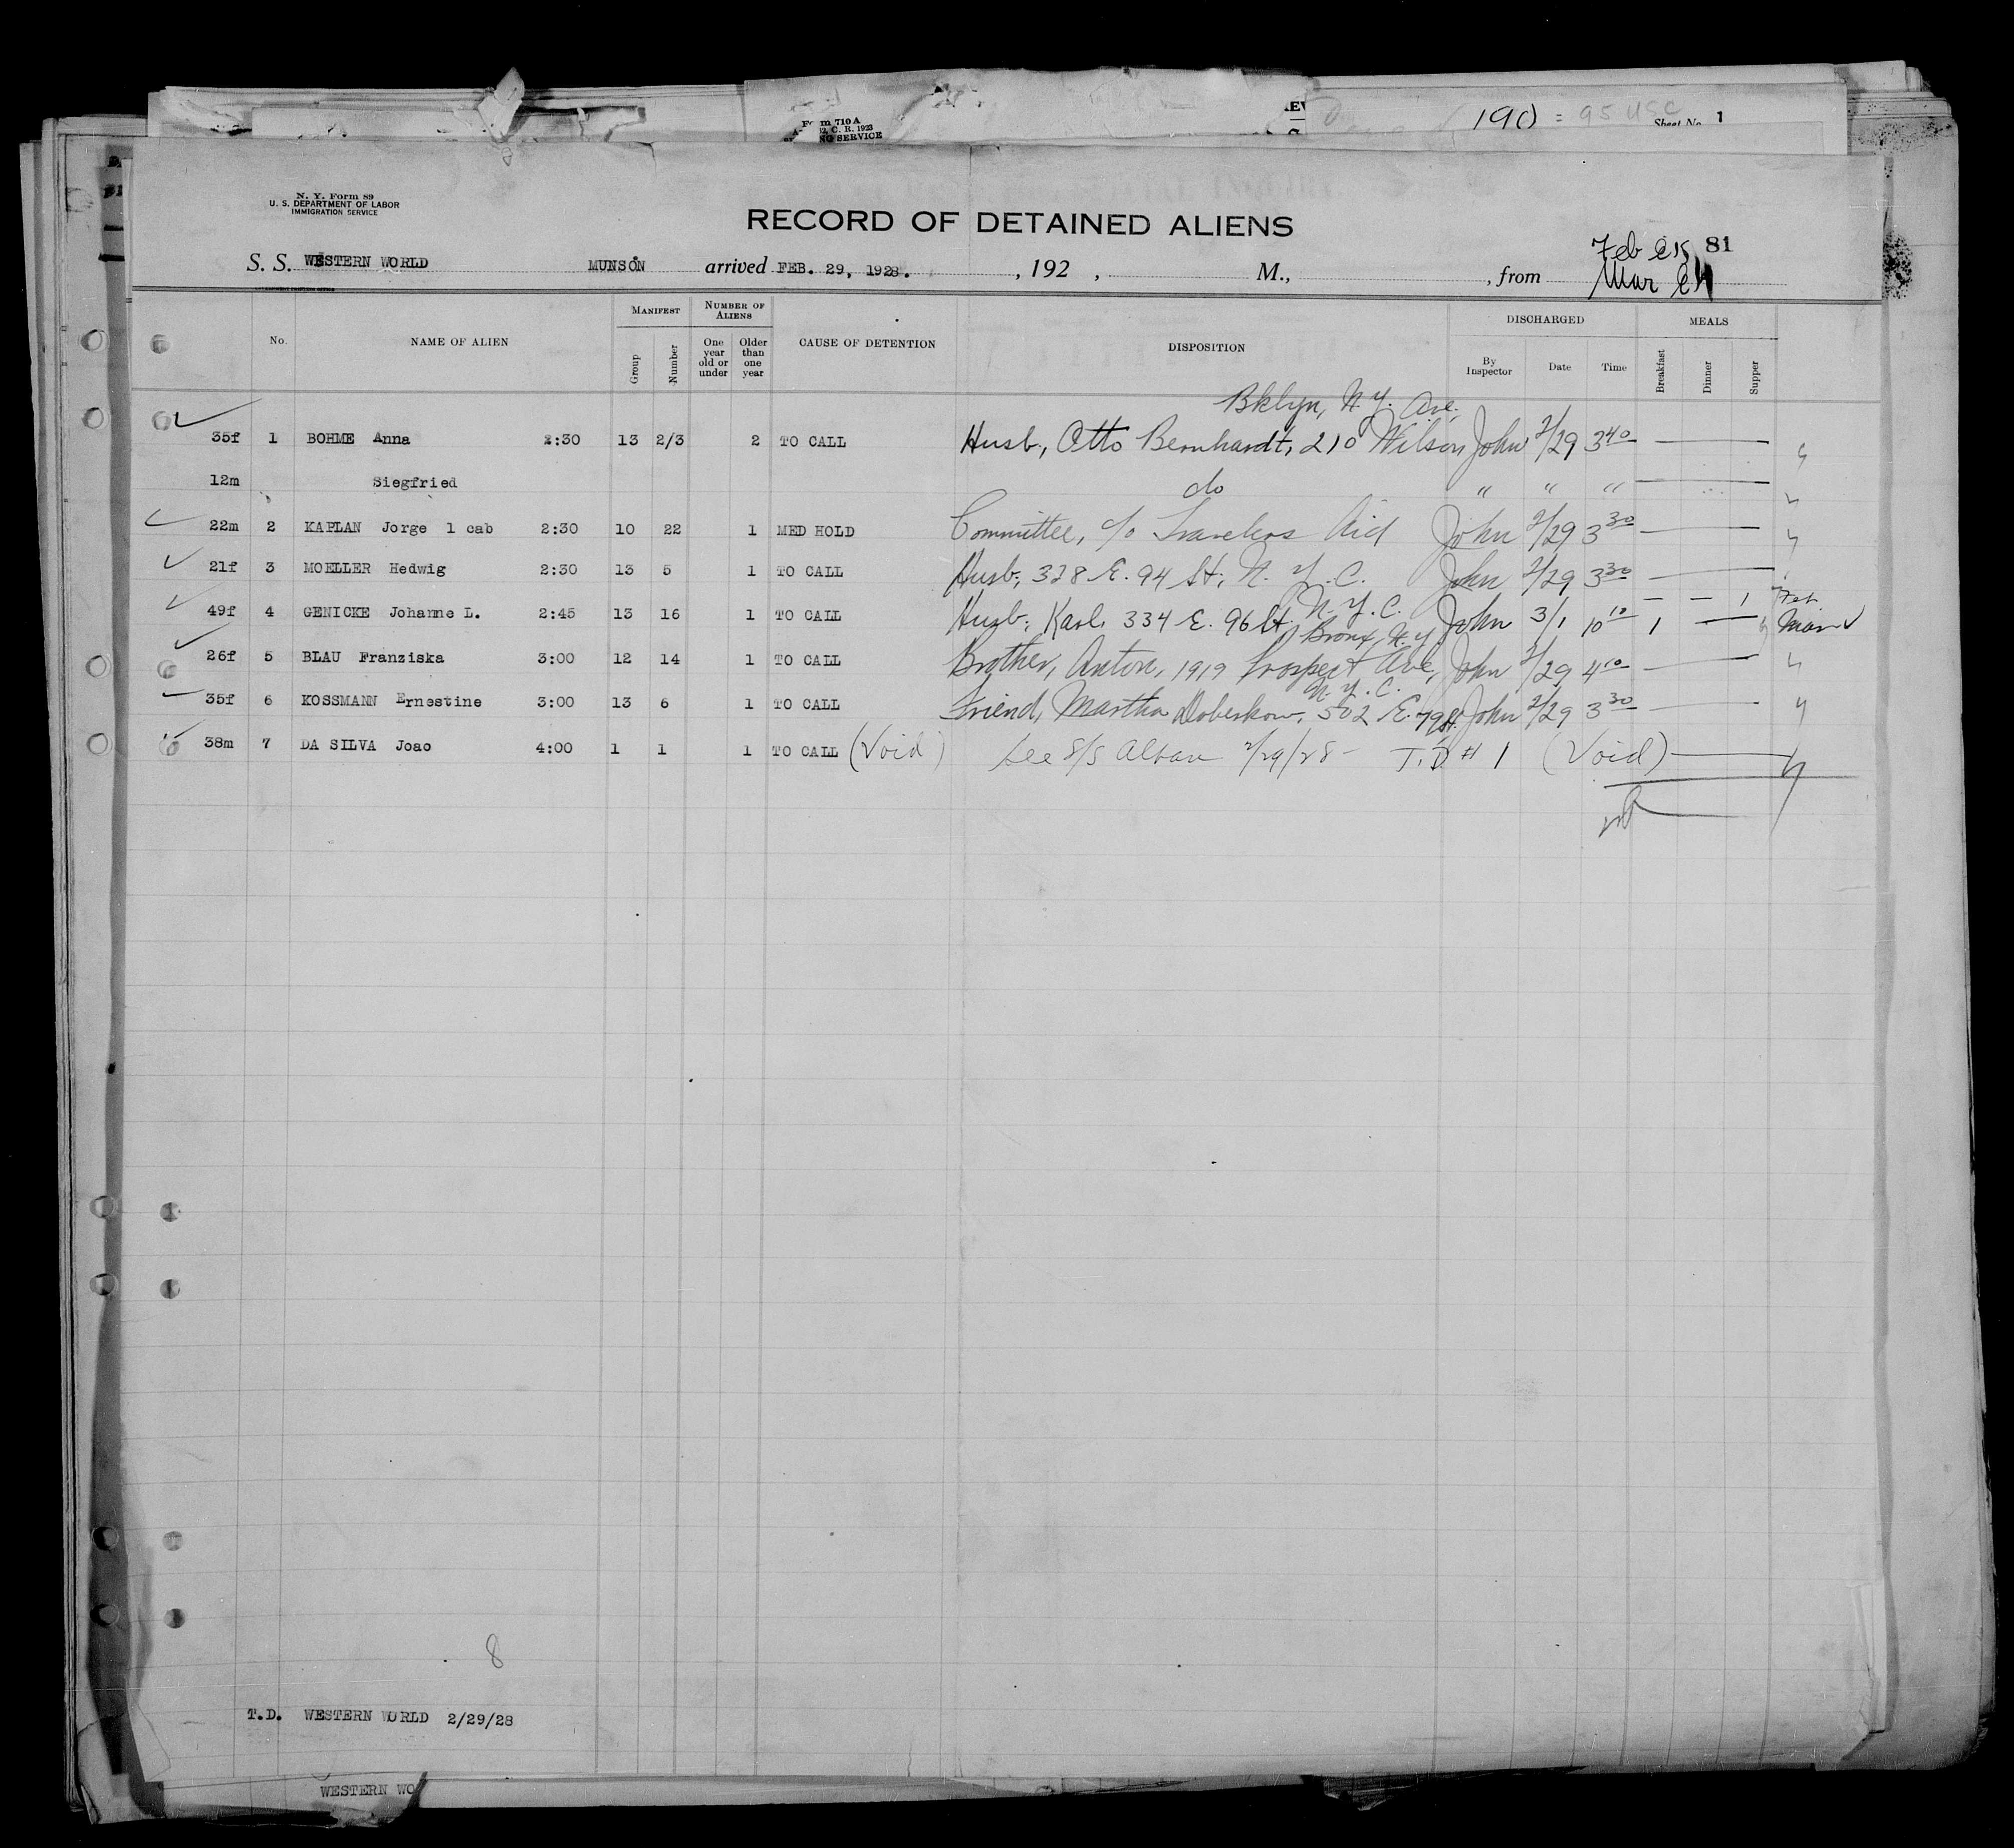 Form 710 A
C. R. 1923
NG SERVICE
190 = 95 USC
Sheet No. 1
N. Y. Form 89
U. S. DEPARTMENT OF LABOR
IMMIGRATION SERVICE
RECORD OF DETAINED ALIENS
81
S. S. WESTERN WORLD MUNSON arrived FEB. 29, 1928. , 192 , M., , from Feb Mar
No. NAME OF ALIEN MANIFEST Group Number NUMBER OF ALIENS One year old or under Older than one year CAUSE OF DETENTION DISPOSITION DISCHARGED By Inspector Date Time MEALS Breakfast Dinner Supper
Bklyn, N.Y. Ave.
35f 1 BOHME Anna 2:30 13 2/3 2 TO CALL Husb, Otto Bernhardt, 210 Wilson John 2/29 3 40
12m Siegfried do " " "
22m 2 KAPLAN Jorge 1 cab 2:30 10 22 1 MED HOLD Committee, c/o Travelers Aid John 2/29 3 30
21f 3 MOELLER Hedwig 2:30 13 5 1 TO CALL Husb; 328 E. 94 St; N. Y. C. John 2/29 3 30
— — 1 Feb
49f 4 GENICKE Johanne L. 2:45 13 16 1 TO CALL Husb; Karl, 334 E. 96 St. N. Y. C. John 3/1 10 10 1 — Mar
Bronx, N.Y
26f 5 BLAU Franziska 3:00 12 14 1 TO CALL Brother, Anton, 1919 Prospect Ave, John 2/29 4 10
N. Y. C.
35f 6 KOSSMANN Ernestine 3:00 13 6 1 TO CALL Friend, Martha Doberkow, 502 E. 79 St. John 2/29 3 30
38m 7 DA SILVA Joao 4:00 1 1 1 TO CALL (Void) See S/S Alban 2/29/28 - T.D # 1 (Void)
8
T.D. WESTERN WORLD 2/29/28
WESTERN WO